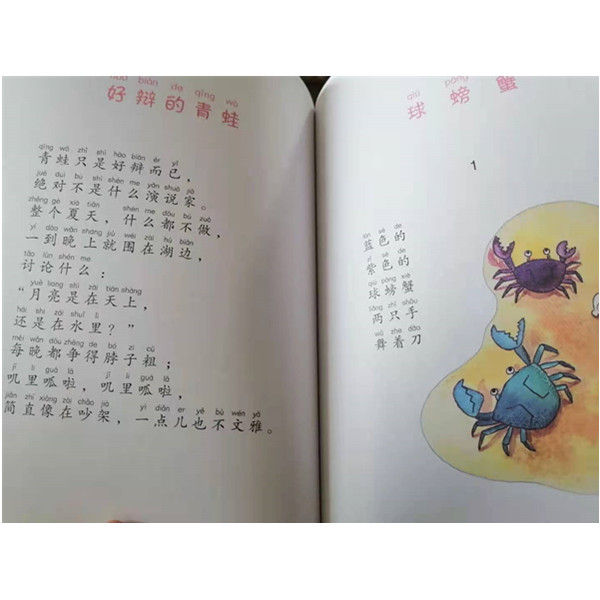 hào biàn de qīng wā
好辩的青蛙
qīng wā zhǐ shì hào biàn ér yǐ
青蛙只是好辩而已，
jué duì bú shì shén me yǎn shuō jiā
绝对不是什么演说家。
zhěng gè xià tiān shén me dōu bú zuò
整个夏天，什么都不做，
yí dào wǎn shang jiù wéi zài hú biān
一到晚上就围在湖边，
tǎo lùn shén me
讨论什么：
yuè liang shì zài tiān shàng
“月亮是在天上，
hái shì zài shuǐ lǐ
还是在水里？”
měi wǎn dōu zhēng de bó zi cū
每晚都争得脖子粗；
jī li guā lā jī li guā lā
叽里呱啦，叽里呱啦，
jiǎn zhí xiàng zài chǎo jià yì diǎn er yě bù wén yǎ
简直像在吵架，一点儿也不文雅。
qiú páng xiè
球螃蟹
1
lán sè de
蓝色的
zǐ sè de
紫色的
qiú páng xiè
球螃蟹
liǎng zhī shǒu
两只手
wǔ zhe dāo
舞着刀